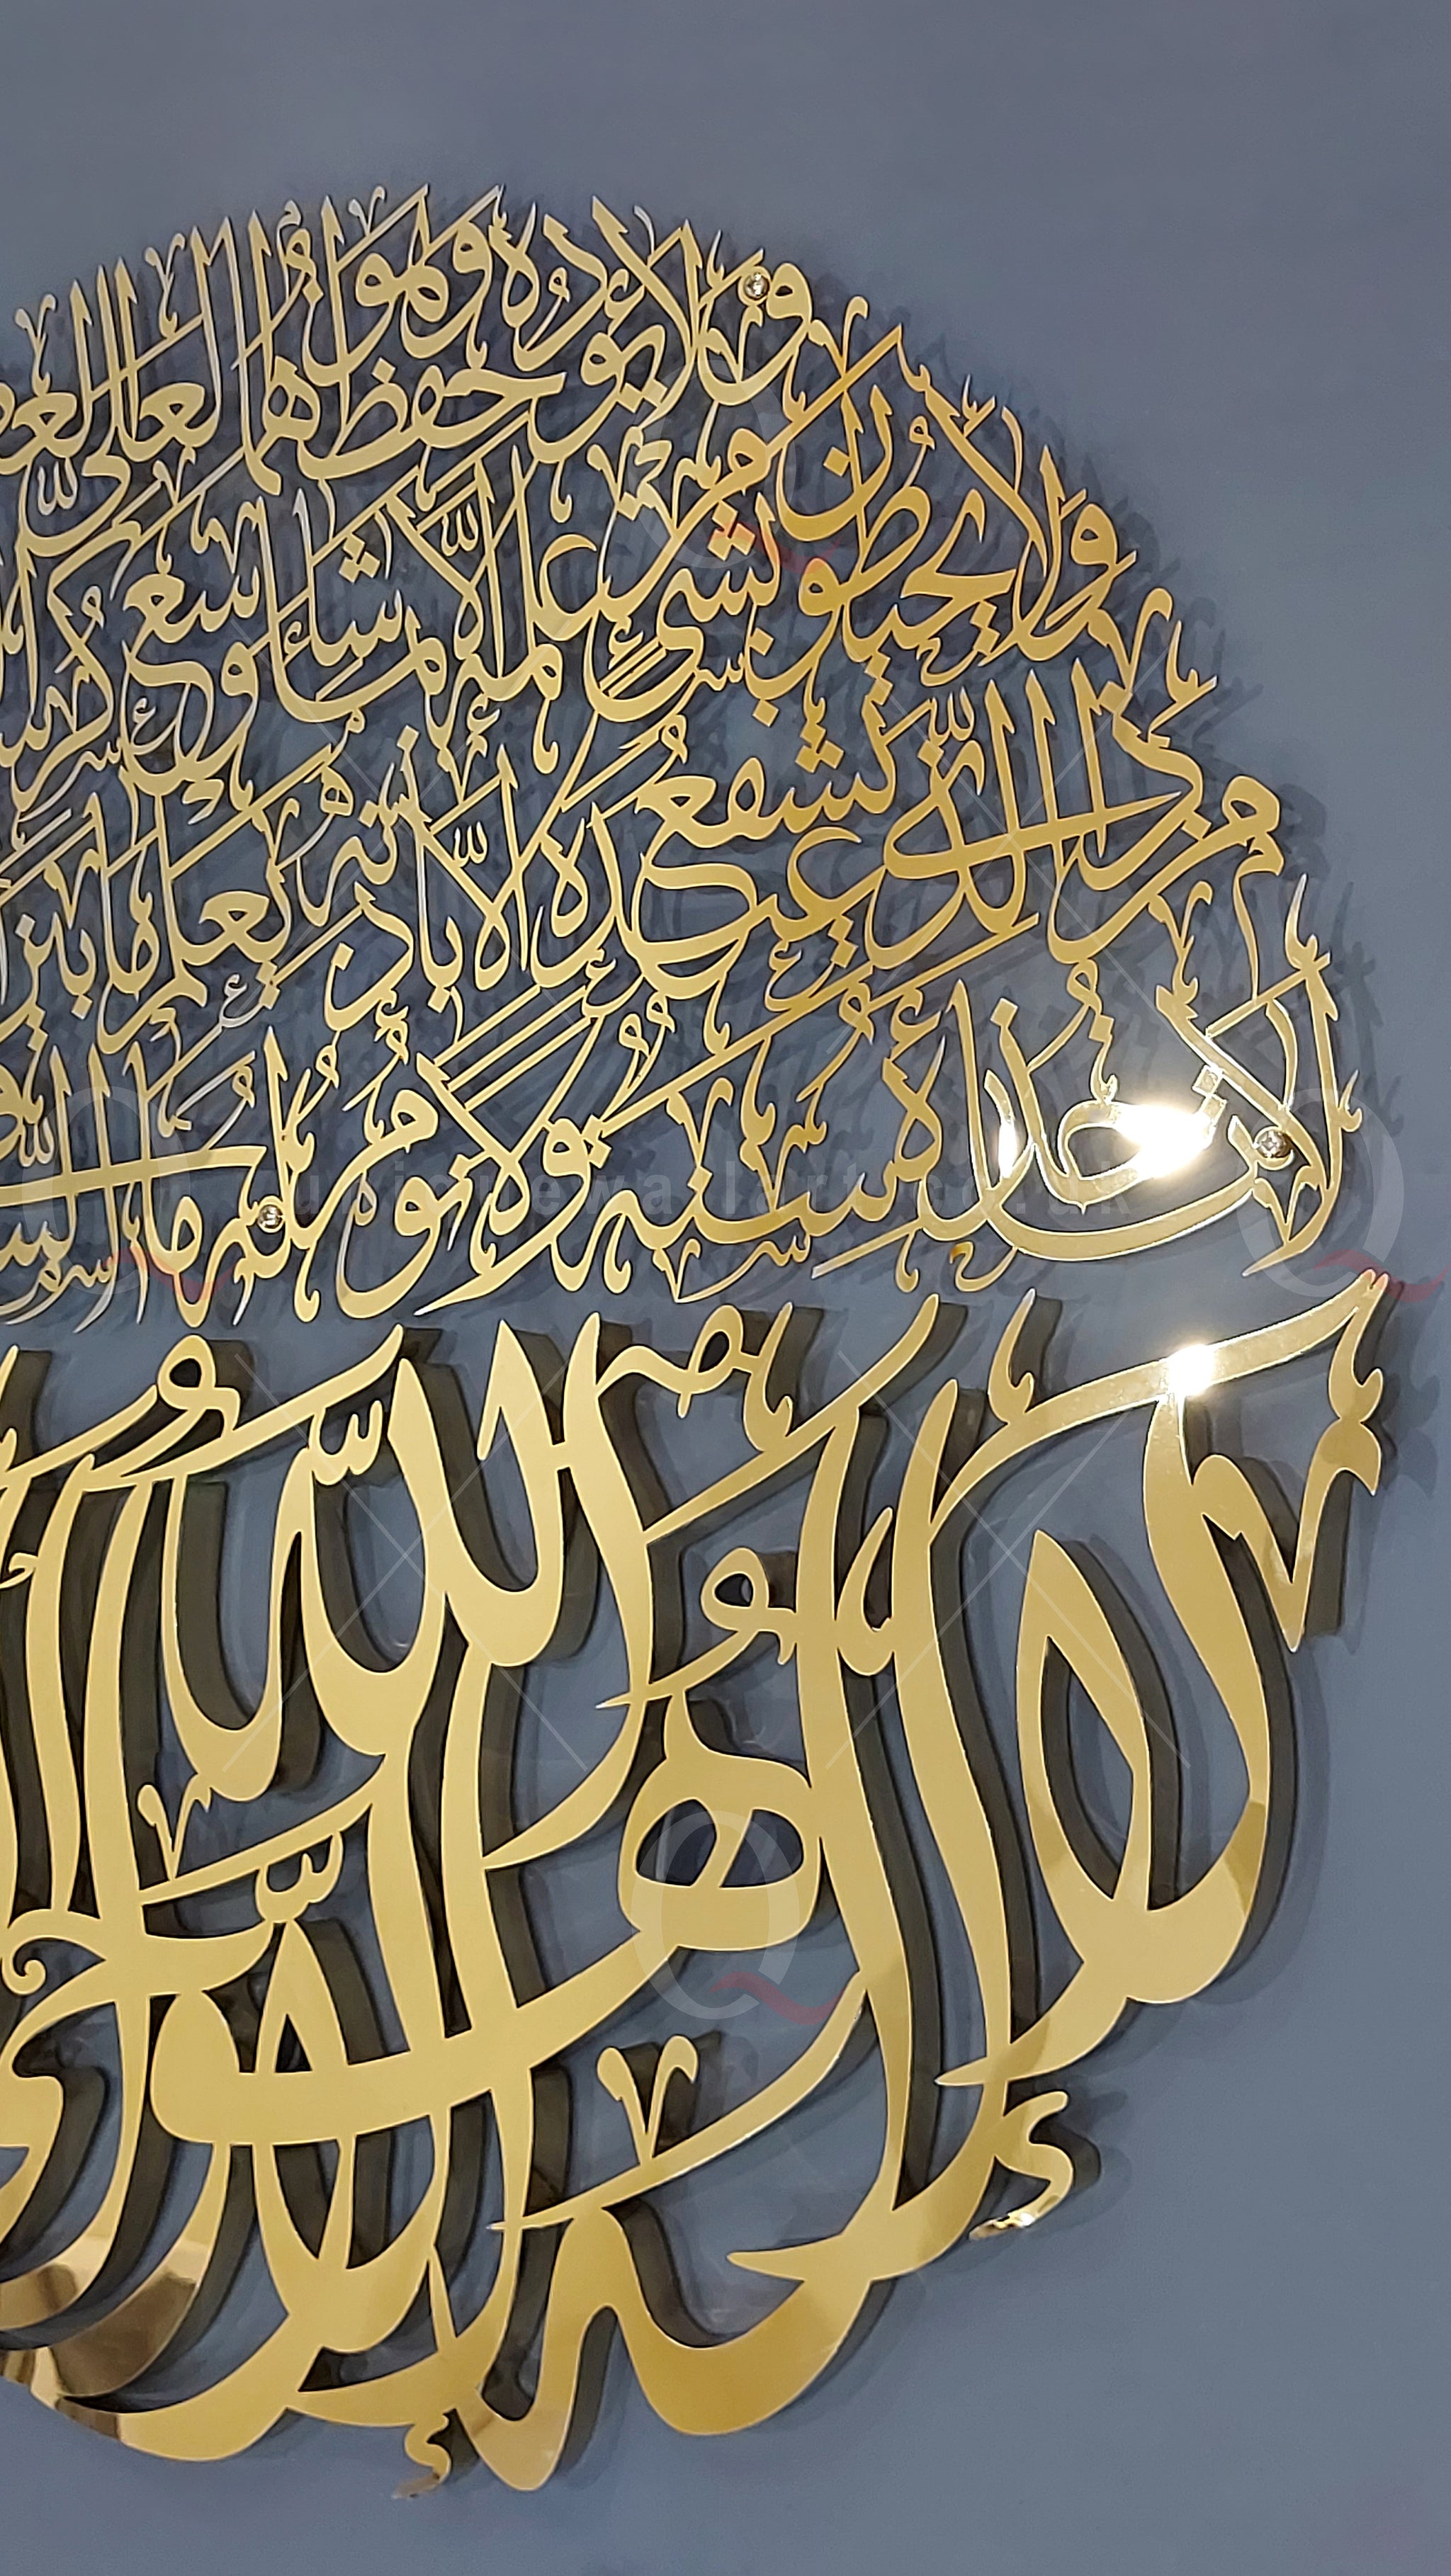 الله لا إله إلا هو
لا تأخذه سنة ولا نوم له ما
من ذا الذي يشفع عنده إلا بإذنه يعلم ما بين
ولا يحيطون بشيء من علمه إلا بما شاء وسع
ولا يؤده حفظهما وهو العلي
uniquewallart.co.uk